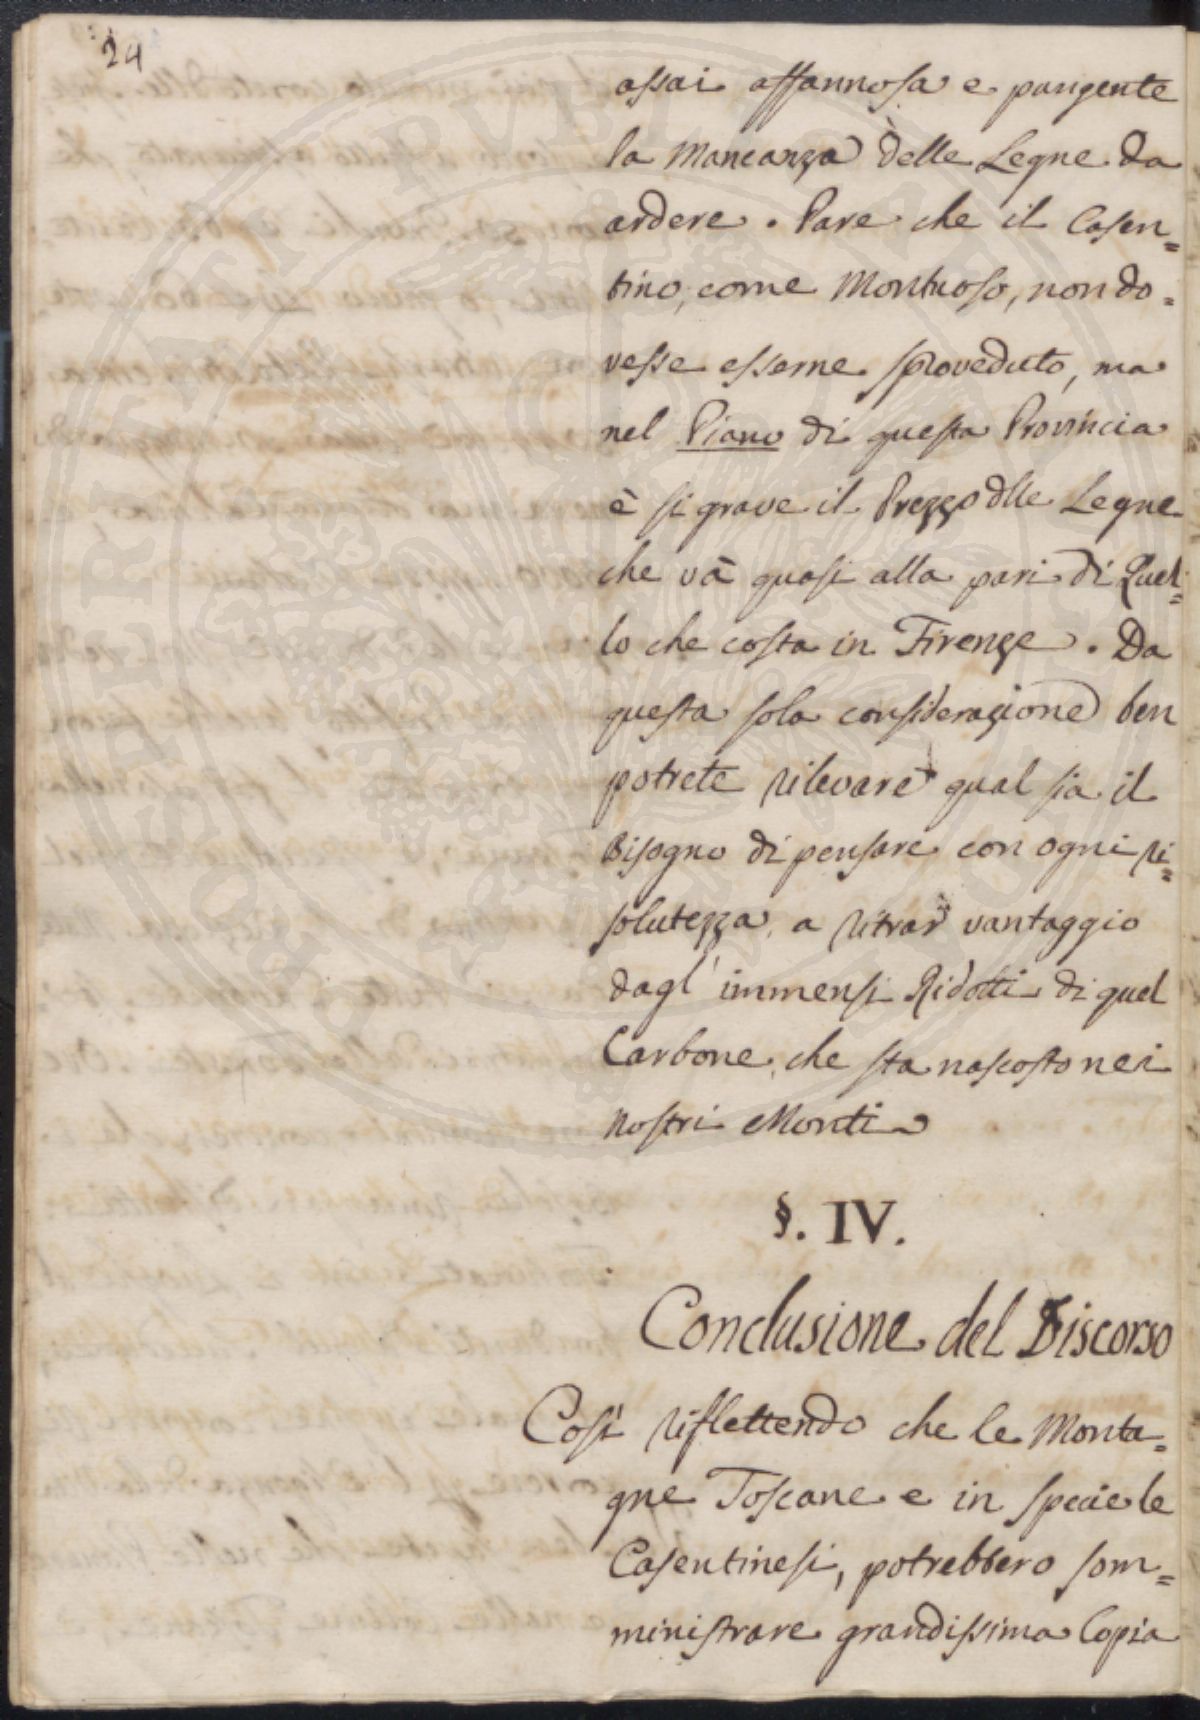 24
assai affannosa e pungente
la Mancanza delle Legne da
ardere. Pare che il Casen=
tino, come Montuoso, non do=
vesse esserne sproveduto, ma
nel Piano di questa Provincia
è si grave il Prezzo dlle Legne
che và quasi alla pari di Quel=
lo che costa in Firenze. Da
questa sola considerazione ben
potrete rilevare qual sia il
Bisogno di pensare con ogni ri=
solutezza, a ritrar vantaggio
dagl' immensi Ridotti di quel
Carbone, che sta nascosto nei
nostri Monti
§. IV.
Conclusione del Discorso
Così riflettendo che le Monta=
gne Toscane e in specie le
Casentinesi, potrebbero som=
ministrare grandissima Copia